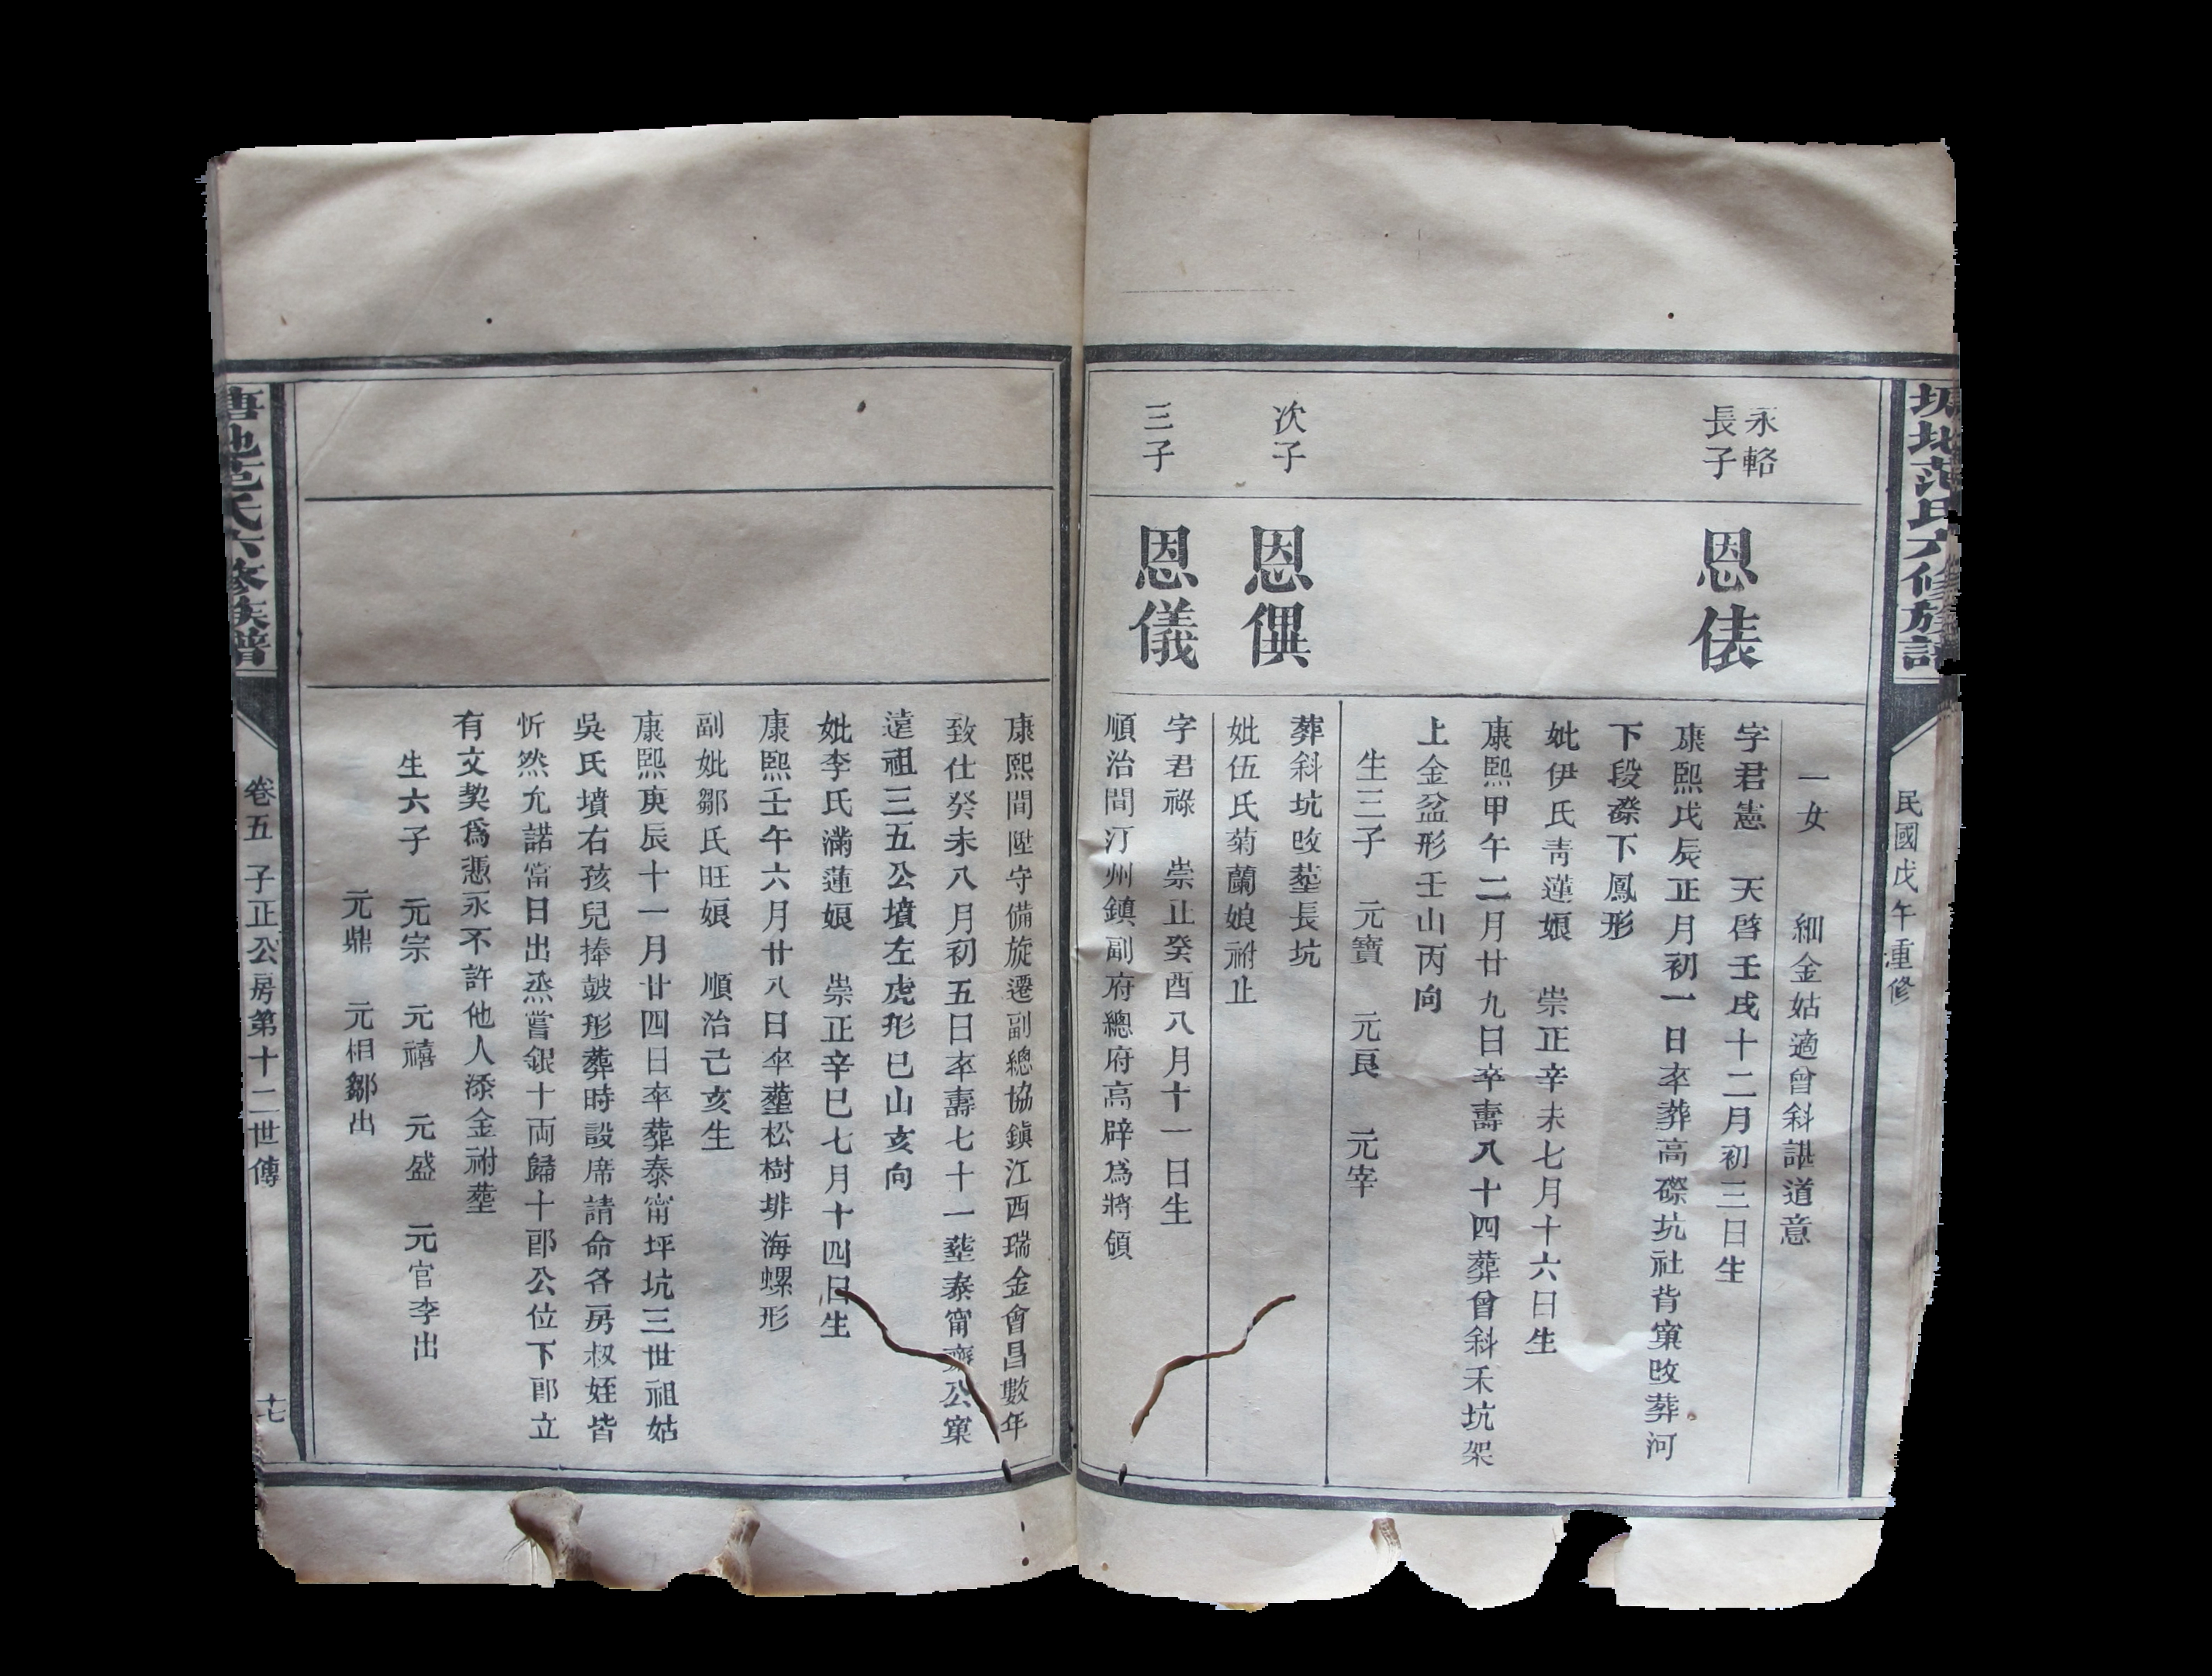 城地范氏六修族譜
民國戊午重修
一女　細金姑適曾斜諶道意
永輅
長子
恩俵
字君憲　天啓壬戌十二月初三日生
康熙戊辰正月初一日卒葬高磜坑社背窠改葬河
下段磜下鳳形
妣伊氏青蓮娘　崇正辛未七月十六日生
康熙甲午二月廿九日卒壽八十四葬曾斜禾坑架
上金盆形壬山丙向
生三子　元寶　元良　元宰
次子
恩僎
葬斜坑改塟長坑
妣伍氏菊蘭娘祔止
三子
恩儀
字君祿　崇止癸酉八月十一日生
順治間汀州鎮副府總府高辟爲將領
康熙間陞守備旋遷副總協鎭江西瑞金會昌數年
致仕癸未八月初五日卒壽七十一塟泰甯齊公窠
逺祖三五公墳左虎形巳山亥向
妣李氏滿蓮娘　崇正辛巳七月十四日生
康熙壬午六月廿八日卒塟松樹排海螺形
副妣鄒氏旺娘　順治己亥生
康熙庚辰十一月廿四日卒葬泰甯坪坑三世祖姑
吳氏墳右孩兒捧皷形葬時設席請命各房叔姪皆
忻然允諾當日出烝嘗銀十両歸十郎公位下郎立
有文契爲憑永不許他人添金祔塟
生六子　元宗　元禧　元盛　元官李出
元鼎　元相鄒出
唐地范氏六修族譜
卷五　子正公房第十二世傳
十七